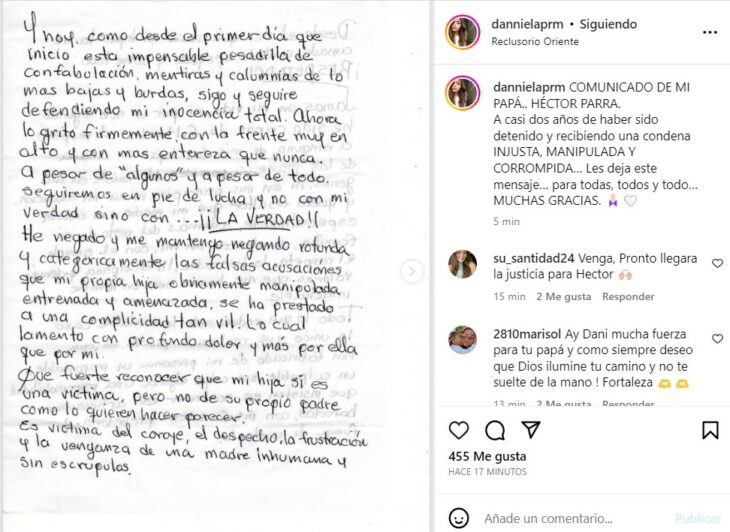 Y hoy, como desde el primer día que
inicio esta impensable pesadilla de
confabulación, mentiras y calumnias de lo
mas bajas y burdas, sigo y seguire
defendiendo mi inocencia total. Ahora
lo grito firmemente, con la frente muy en
alto y con mas entereza que nunca.
A pesar de "algunos" y a pesar de todo.
seguiremos en pie de lucha y no con mi
verdad sino con ... ¡¡LA VERDAD!!
He negado y me mantengo negando rotunda
y categóricamente las falsas acusaciones
que mi propia hija obviamente manipulada,
entrenada y amenazada, se ha prestado
a una complicidad tan vil. Lo cual
lamento con profundo dolor y más por ella
que por mi.
Que fuerte reconocer que mi hija si es
una victima, pero no de su propio padre
como lo quieren hacer parecer.
Es victima del coraje, el despecho, la frustración
y la venganza de una madre inhumana y
sin escrupulos.
dannielaprm • Siguiendo
Reclusorio Oriente
dannielaprm COMUNICADO DE MI
PAPÁ.. HÉCTOR PARRA.
A casi dos años de haber sido
detenido y recibiendo una condena
INJUSTA, MANIPULADA Y
CORROMPIDA... Les deja este
mensaje... para todas, todos y todo...
MUCHAS GRACIAS. 🙏🏻 🤍
5 min
su_santidad24 Venga, Pronto llegara
la justicia para Hector 🙌🏻
15 min 2 Me gusta Responder
2810marisol Ay Dani mucha fuerza
para tu papá y como siempre deseo
que Dios ilumine tu camino y no te
suelte de la mano ! Fortaleza 🫶 🫶
13 min 2 Me gusta Responder
455 Me gusta
HACE 17 MINUTOS
Añade un comentario...
Publicar